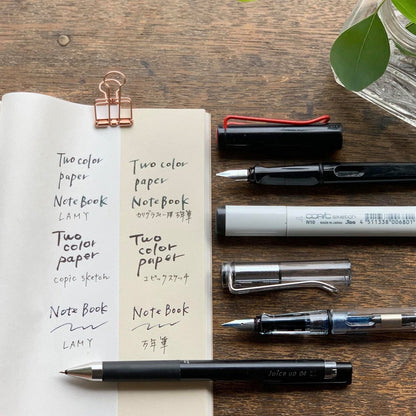 Two color
paper
NoteBook
LAMY
Two
color
paper
copic sketch
Note Book
LAMY
Two color
paper
NoteBook
カリグラフィー用万年筆
Two
color
paper
コピックスケッチ
Note Book
万年筆
COPIC sketch
N10
4 511338 006801
Juice up 04